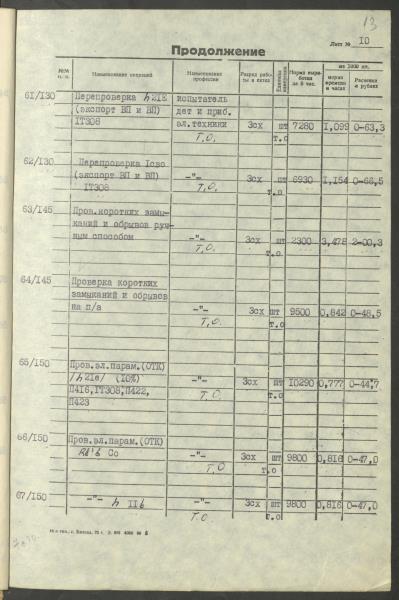 13
Лист № 10
Продолжение
№№ п. п.
Наименование операций
Наименование профессии
Разряд работы и сетка
Единица измерения
Норма выработки за 8 час.
на 1000 шт.
норма времени в часах
Расценка в рублях
61/130 Перепроверка h21E испытатель
(экспорт ВП и ВП) дет и приб.
1Т308 эл.техники 3сх шт 7280 1,099 0-63,3
Т.О. т.о
62/130 Перепроверка Iсво
(экспорт ВП и ВП) -"- 3сх шт 6930 1,154 0-66,5
1Т308 Т.О. т.о
63/145 Пров.коротких замы-
каний и обрывов руч- -"-
ным способом Т.О. 3сх шт 2300 3,478 2-00,3
т.о
64/145 Проверка коротких
замыканий и обрывов
на п/а -"- 3сх шт 9500 0,842 0-48,5
Т.О. т.о
65/150 Пров.эл.парам.(ОТК)
/h21е/ (10%) -"- 3сх шт 10290 0,777 0-44,7
П416,1Т308,П422, Т.О. т.о
П423
66/150 Пров.эл.парам.(ОТК)
Сс -"- 3сх шт 9800 0,816 0-47,0
Т.О т.о
67/150 -"- h IIб -"- 3сх шт 9800 0,816 0-47,0
Т.О. т.о